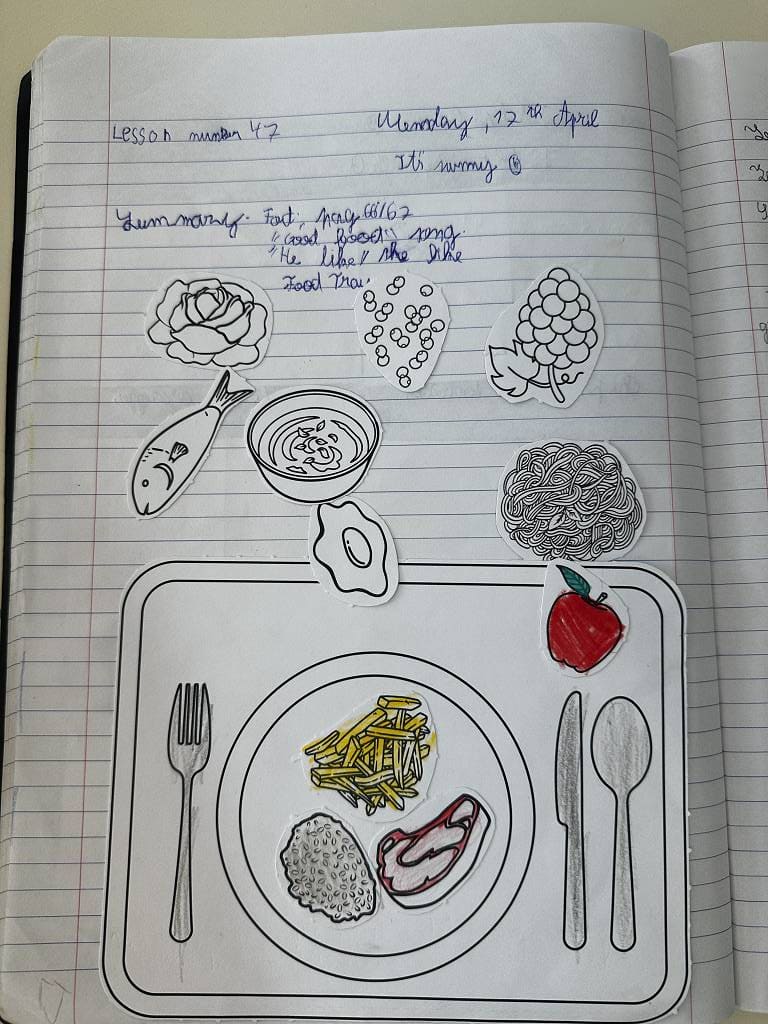 Lesson number 47 Monday, 17th April
It's sunny
Summary: pag 66/67
"Good food" song.
"He like" she like
Food Tray.